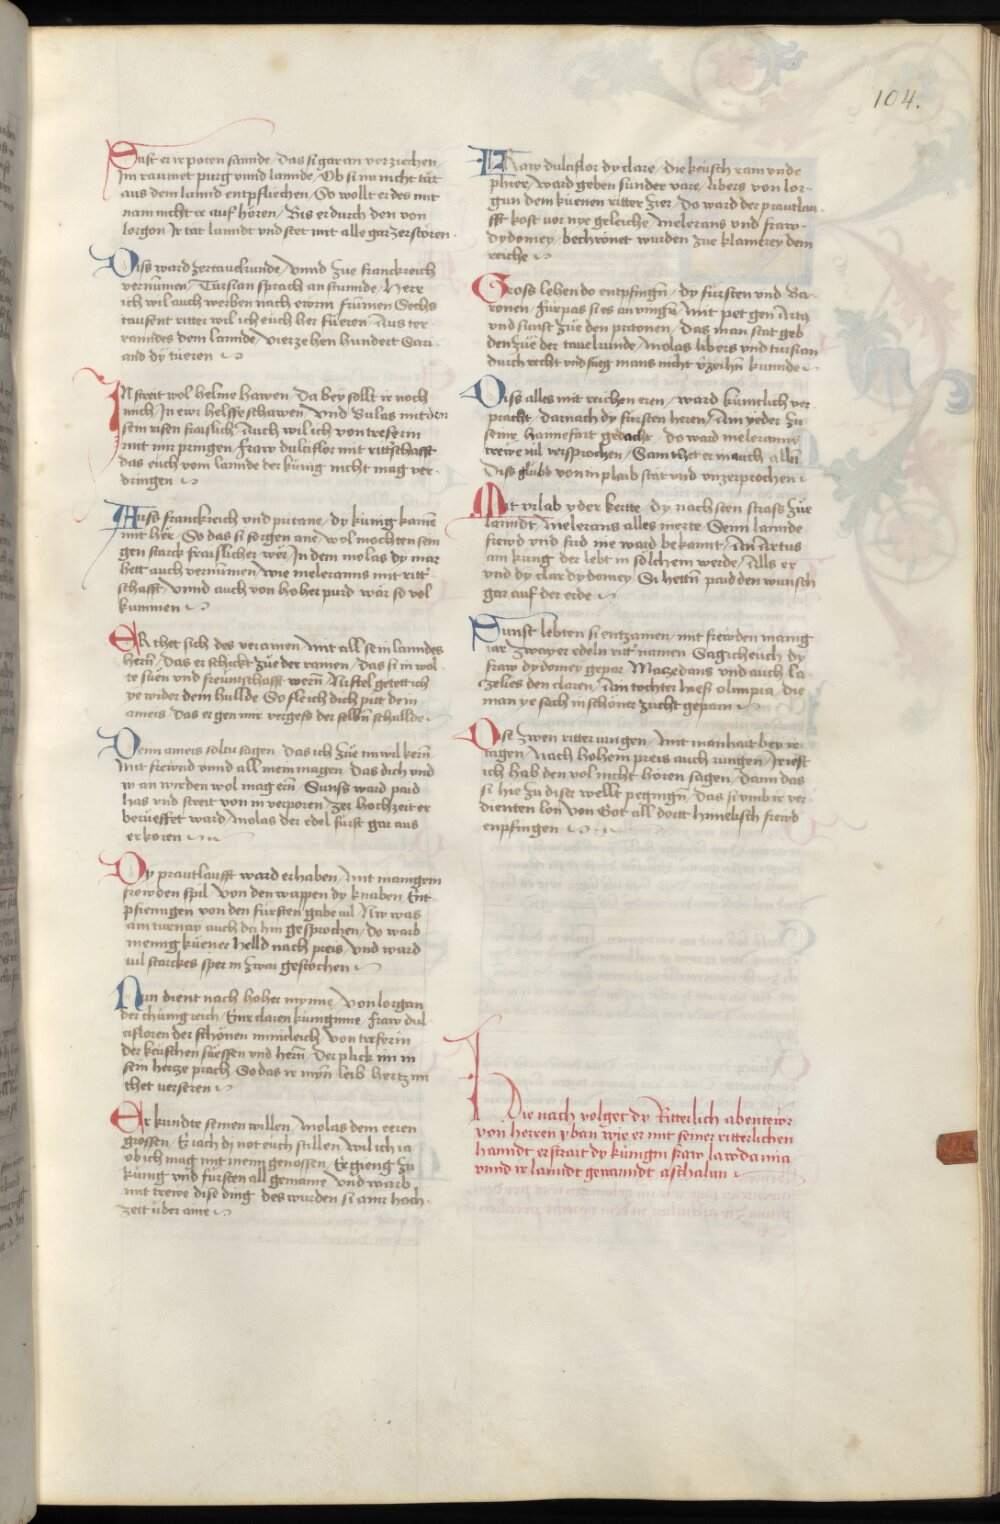 104.
Sust er ir poten sannde / das si gar an verziechen
Im raumet purg vnnd lannde / Ob si im nicht tät
aus dem lannd entpfliechen / So wollt er des mit
nam nicht ee auf hören / Bis er durch den von
lorgon Ir tat lanndt vnd stet mit alle gar zerstören
Diss ward zer tauelrunde / vnnd zue franckreich
vernümen / Tursian sprach an stunnde / Herr
ich wil auch werben nach ewrm frümen Sechs
tausent ritter wil ich euch her füeren / Aus ter
ramdes dem lannde / vierzehen hundert Sari
and dy tüeren
In streit wol helme hawen / Da bey sollt ir noch
mich / In ewr helffe schawen / Vnd Bulas mit den
sein risen fraislich / Auch wil ich von treferin
mit mir pringen / Fraw dulciflor mit rittschafft
das euch vom lannde der künig nicht mag ver
dringen
Auss franckreich vnd putane / dy künig kamē
mit her / So das si sorgen ane / wol mochten sein
gen starck fraislicher wer / In dem molas dy mär
hett auch vernümen / wie meleranns mit ritt
schafft / vnnd auch von hoher purd wär so vol
kummen
Er thet sich des veramen / mit all sein lanndes
hern̄ / das er schickt zue der ramen / das si in wol
te süen vnd freuntschafft wern̄ / Nistel getett ich
ye wider dem hullde So fleich dich pitt dein
ameis / das er gen mir vergess der selbn̄ schullde
Dein ameis soltu sagen / Das ich zue im wil kern̄
mit frewnd vnnd all mein magen / Das dich vnd
in an wirden wol mag ern̄ / Sunss ward paid
has vnd streit von in verporen / zer hochzeit er
berueffet ward / molas der edel fürst gar aus
erkoren
Dy prautlaufft ward erhaben / mit manigem
frewden spil / von den wappen dy knaben / Ent-
pfienngen von den fürsten gabe vil / Nw was
ain turnay auch da hin gesprochen / do warb
menig küener helld nach preis / vnd ward
vil starckes sper in zwai gestochen
Nun dient nach hoher mynne / von lorgan
der chünig reich / Eine claren küniginne fraw dul
ciflozen der schönen minicleich / von treferin
der keuschen süessen vnd hern̄ / Der plick im in
sein hertze prach So das ir myn̄ leib hertz im
thet verseren
Er kundte seinen willen / molas dem eeren
grossen / Er iach dy not euch stillen / wil ich ia
ob ich mag mit mein genossen / Er gieng zu
künig vnd fürsten all gemaine / vnd warb
mit trewe dise ding / des wurden si ainr hoch-
zeit über aine
Fraw dulciflor dy clare / die keusch ram vnde
phier / ward geben sunder vare / libers von lor
gun dem küenen ritter zier / Do ward der prautlau
fft kost vor nye geleiche / melerans vnd fraw
dydomey / bechrönet wurden zue klamirey dem
reiche
Gross lehen do entpfingn̄ / dy fürsten vnd Ba-
ronen / fürpas si es an vingn̄ / mit pet gen Artus
vnd sunst zue den pritonen / das man stat geb
den zue der tauelrunde / molas libers vnd tursian
durch recht vnd füeg mans nicht v̈zeihn̄ kunnde
Diss alles mit reichen eren / ward küntlich ver
pracht / darnach dy fürsten heren / Ain yeder zu
seiner hannefart gedacht / do ward meleranns
trewe vil versprochen / Sam thet er in auch alln̄
Diss glübb von in plaib stät vnd vnzerprochen
Mit vrlab yder kertte / dy nachsten strass zue
lanndt / melerans alles merte / Seim lannde
frewd vnd fud me ward bekannt / An Artus
ain kung der lebt in solchem werde / Alls er
vnd dy clar dydomey / Si hettn̄ paid den wunsch
gar auf der erde
Sunst lebten si entzamen / mit frewden manig
iar / zwayer edeln ritt namen Sag ich euch dy
fraw dydomey gepar / Mazedans vnd auch la
zelies den claren / Ain tochter hiess olimpia / die
man ye sach in schöner zucht geparn
Dise zwen ritter iungen / mit manhait bey ir
tagen / Nach hohem preis auch rungen / Ir iest
ich hab den vol nicht hören sagen / Dann das
si hie zu diser wellt pegingn̄ / das si vmb ir ver
dienten lon / von Got all dortt himelisch frewd
enpfingen
Hie nach volget dy Ritterlich abentewr
von herren yban wie er mit seiner ritterlichen
hanndt erstrait dy künigin fraw lawdamia
vnnd ir lanndt genanndt aschalun